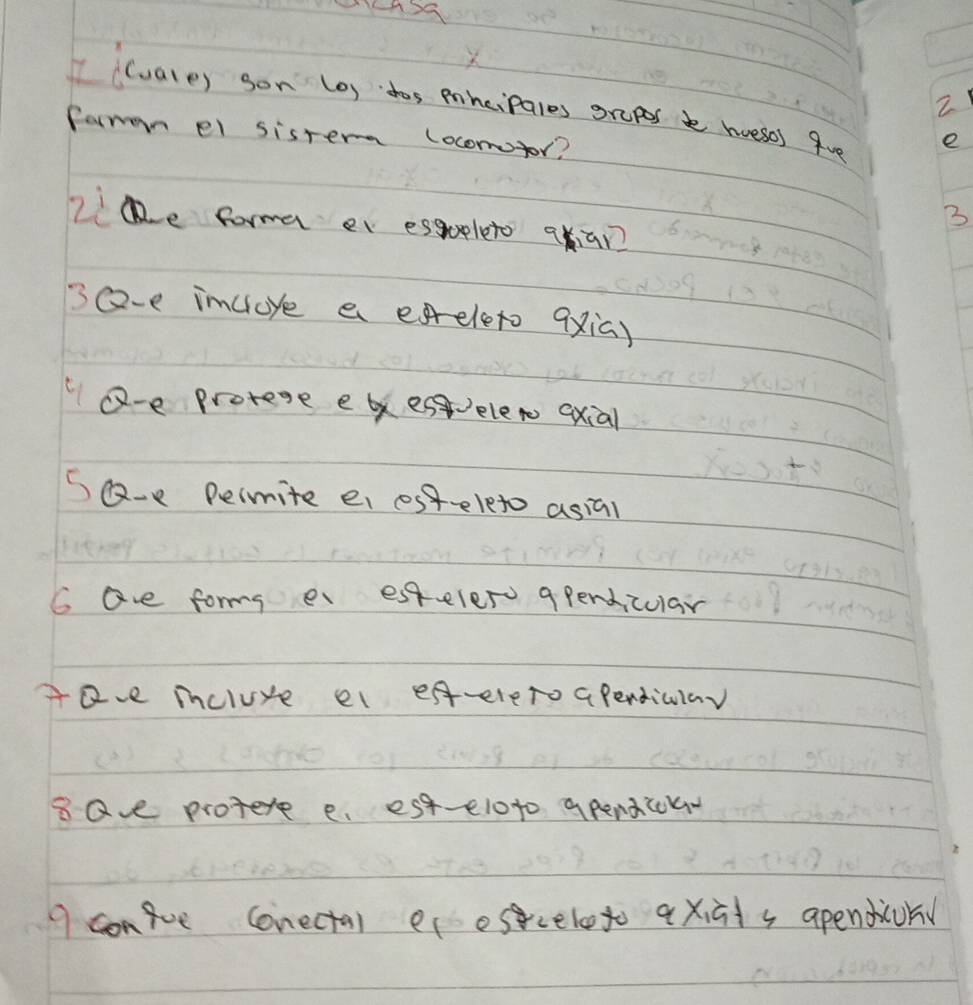 casa
1 ¿Cuales son los dos principales grupos de huesos que
forman el sistema locomotor?
2 ¿Que forma el esqueleto axial?
3 Que incluye el esqueleto axial
4 Que protege el esqueleto axial
5 Que permite el esqueleto asial
6 Que forma el esqueleto apendicular
7 Que incluye el esqueleto apendicular
8 Que protexe el esqueloto apendicular
9 con que conectal el esqueleto axial y apendicular
2
e
3